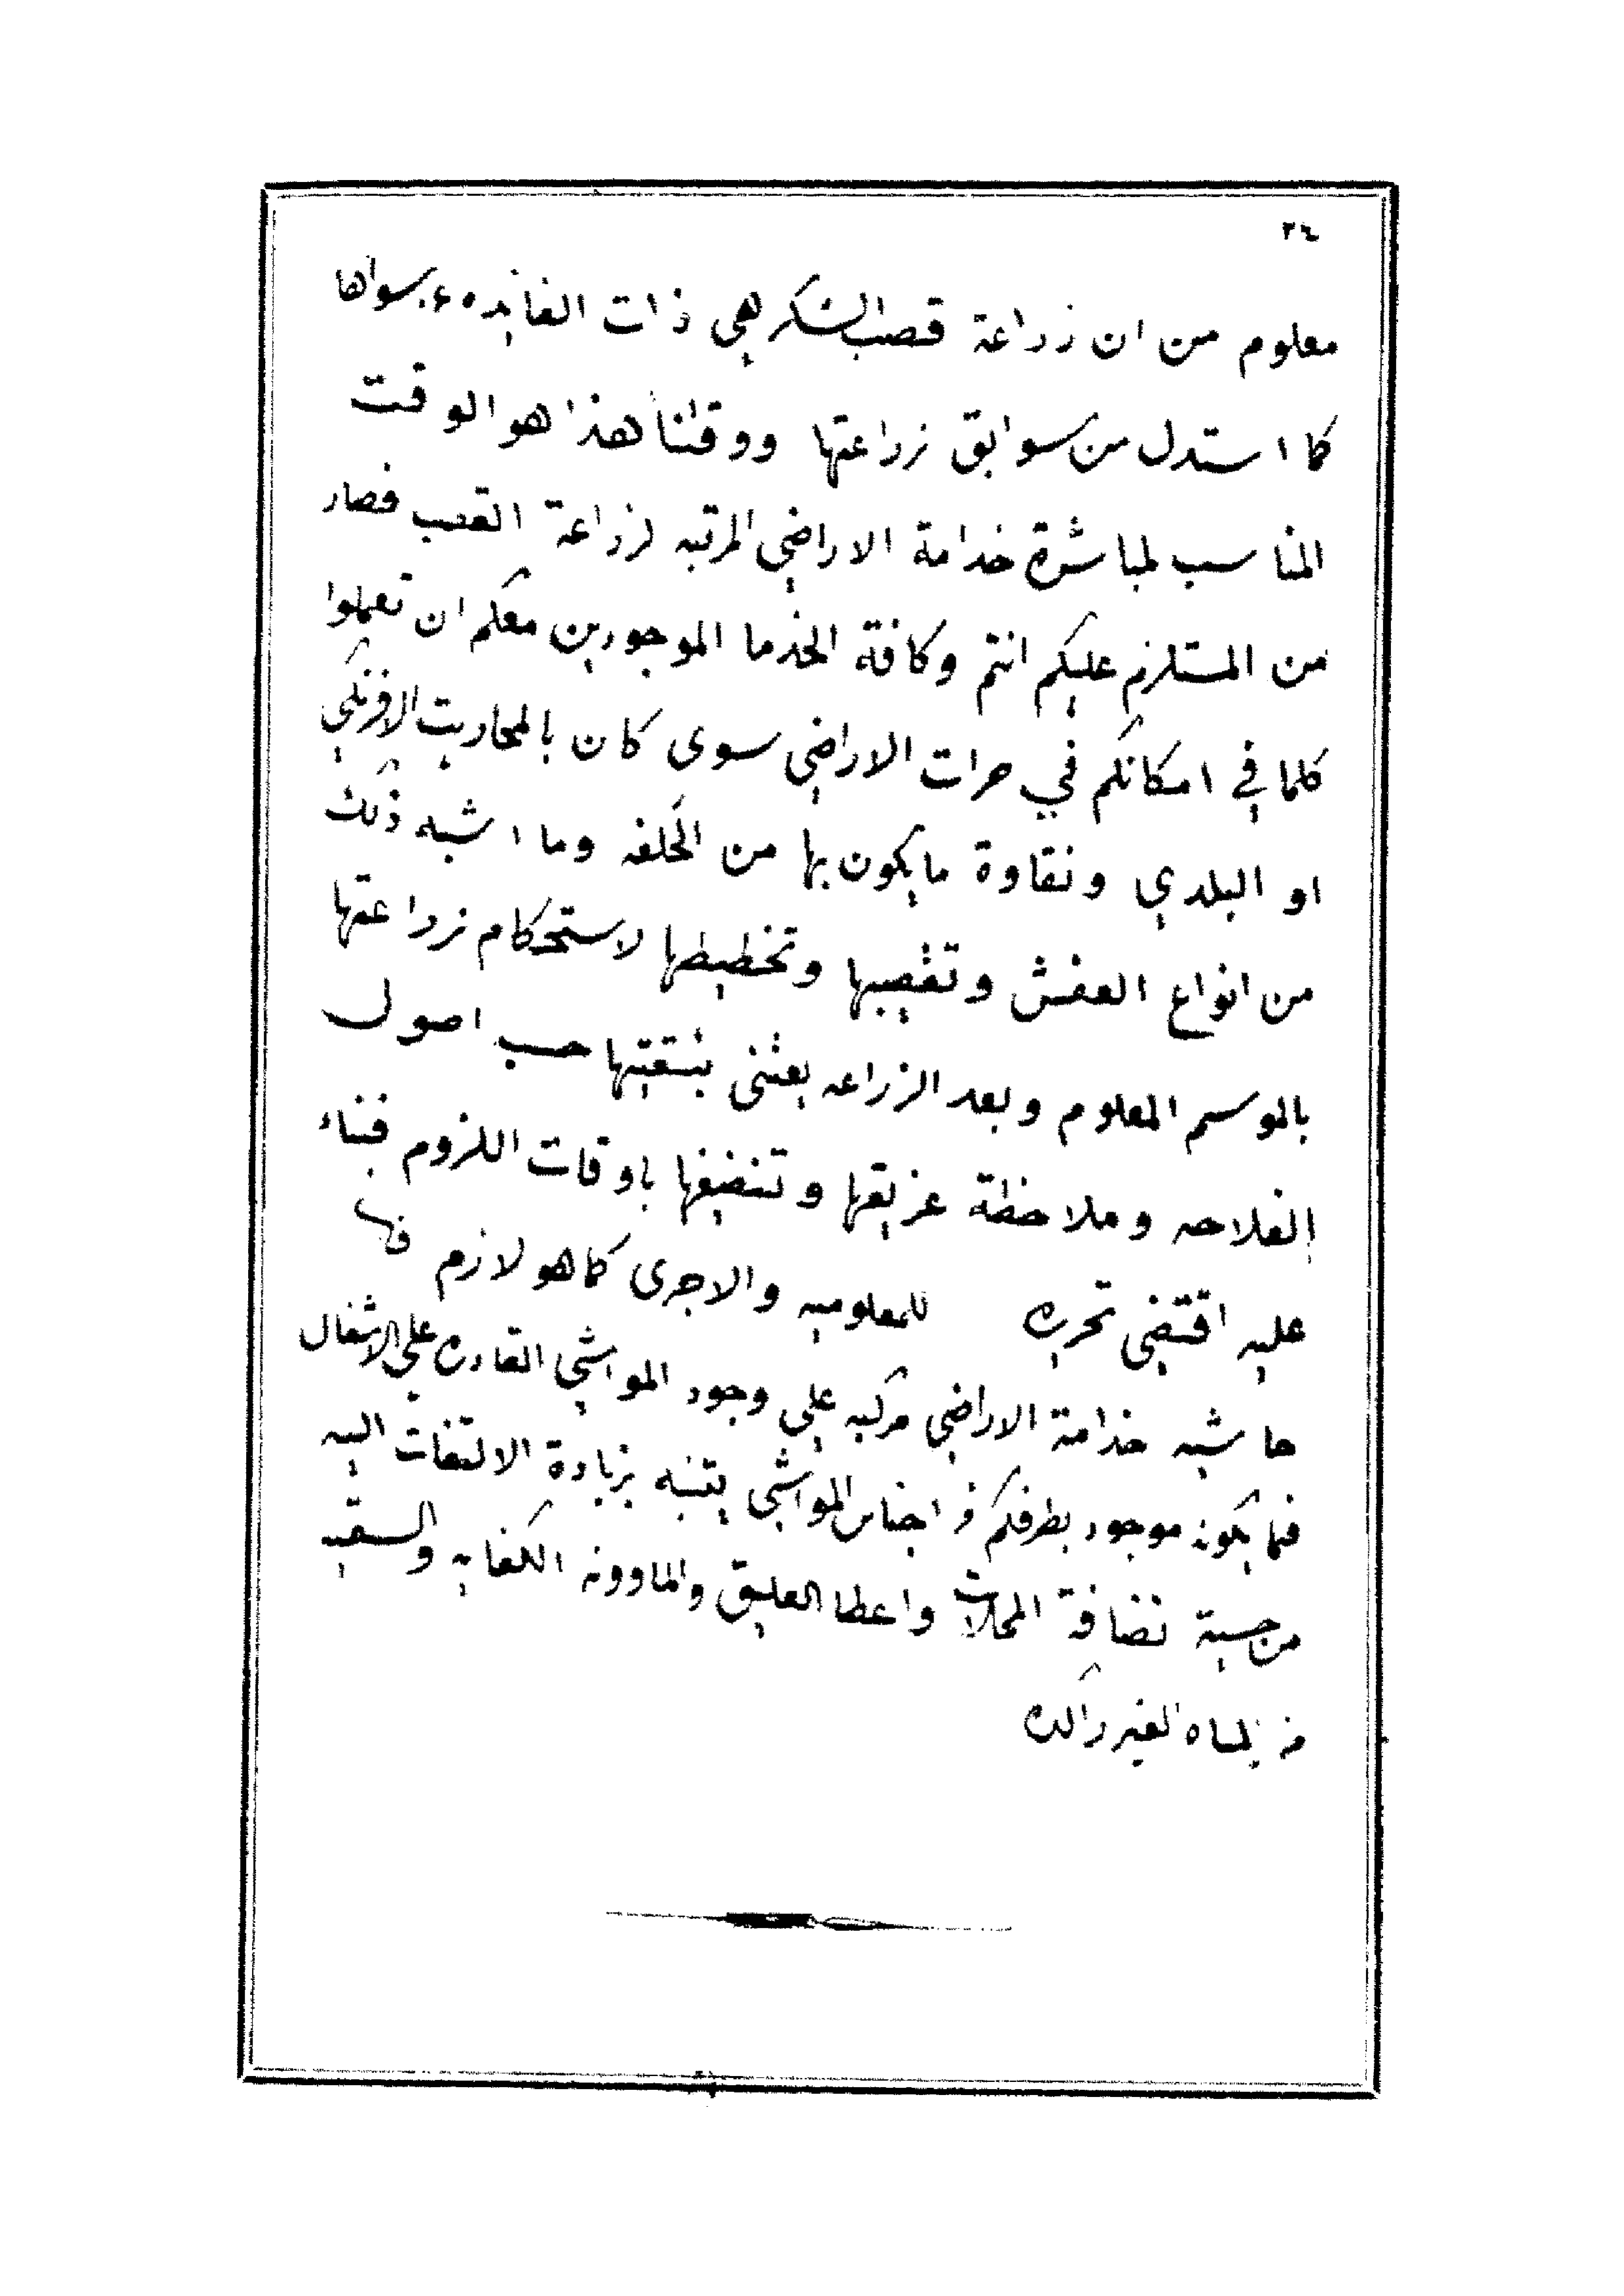 ٣٤
معلوم من ان زراعة قصب السكر هي ذات الفايده عن سواها
كما استدل من سوابق زراعتها ووقتنا هذا هو الوقت
المناسب لمباشرة خدامة الاراضي المرتبه لزراعة القصب فصار
من المستلزم عليكم انتم وكافة الخدما الموجودين معكم ان تعملوا
كلما في امكانكم في حرات الاراضي سوى كان بالمحاريت الافرنكي
او البلدي ونقاوة ما يكون بها من الحلفه وما اشبه ذلك
من انواع العفش وتقصيبها وتخطيطها لاستحكام زراعتها
بالموسم المعلوم وبعد الزراعه يعتنى بتسقيتها حسب اصول
الفلاحه وملاحظة عزيقها وتنضيفها باوقات اللزوم فبناء
عليه اقتضى تحريره للمعلوميه والاجرى كما هو لازم فيها
حاشيه خدامة الاراضي مركبه على وجود المواشي القادره على الاشغال
فما يكون موجود بطرفكم من اجناس المواشي يتنبه بزيادة الالتفات اليه
من حسبة نضافة المحلات واعطا العليق والماوونه الكفايه والسقيه
من المياه الغير راكده